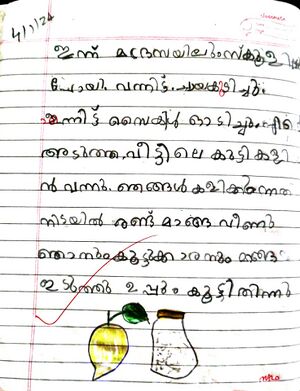 4/1/24
ഇന്ന് മദ്രസയിലും സ്കൂളി
പോയി. വന്നിട്ട് ചായകുടിച്ചു.
എന്നിട്ട് സൈക്കിൾ ഓടിച്ചു.
അടുത്ത വീട്ടിലെ കുട്ടി കളി
ൻ വന്നു. ഞങ്ങൾ കളിക്കുന്നത
നിടയിൽ രണ്ട് മാങ്ങ വീണു
ഞാനും കൂട്ടുക്കാരനും മാങ്ങ
ഇടുത്തു ഉപ്പും കൂട്ടി തിന്നു